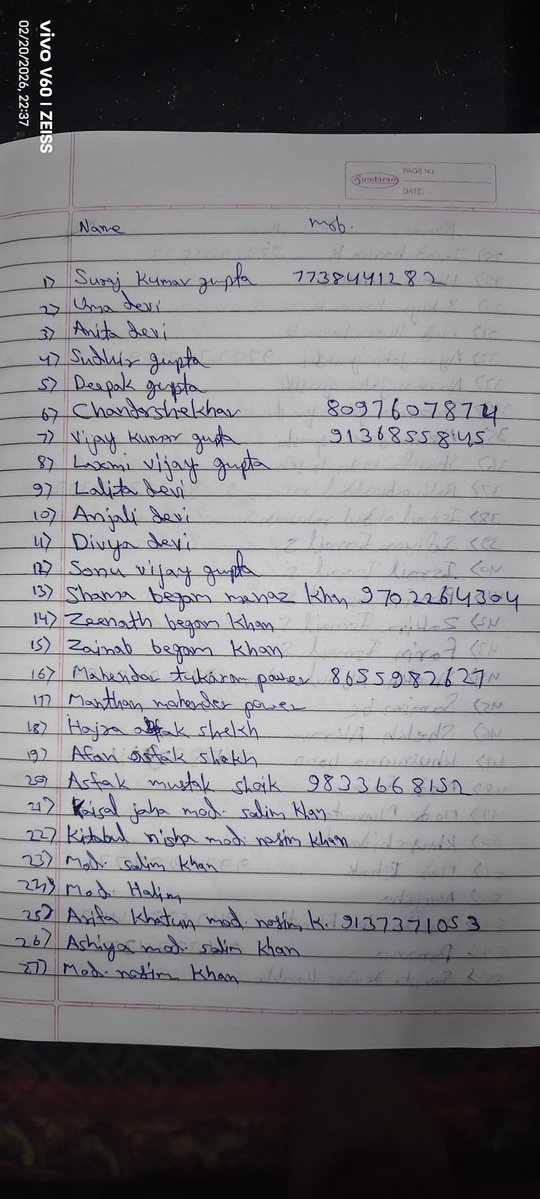 vivo V60 | ZEISS
02/20/2026, 22:37
Sundaram
PAGE No.:
DATE:
Name mob.
1) Suraj Kumar gupta 7738441282
2) Uma devi
3) Anita devi
4) Sudhir gupta
5) Deepak gupta
6) Chandarshekhar 8097607874
7) Vijay Kumar gupta 9136855845
8) Laxmi vijay gupta
9) Lalita devi
10) Anjali devi
11) Divya devi
12) Sonu vijay gupta
13) Shama begam menaz khan 9702264304
14) Zeenath begam Khan
15) Zainab begam Khan
16) Mahendar tukaram power 8655982627
17) Manthan mahender power
18) Hajra asfak shekh
19) Afan asfak shakh
20) Asfak mustak shaik 9833668152
21) Kaisal jaha mod. salim khan
22) Kitabul nisha mod. nasim khan
23) Mod. salim khan
24) Mod. Halim
25) Asifa Khatun mod. nasim K. 9137371053
26) Ashiya mod. salim khan
27) Mod. nasim Khan